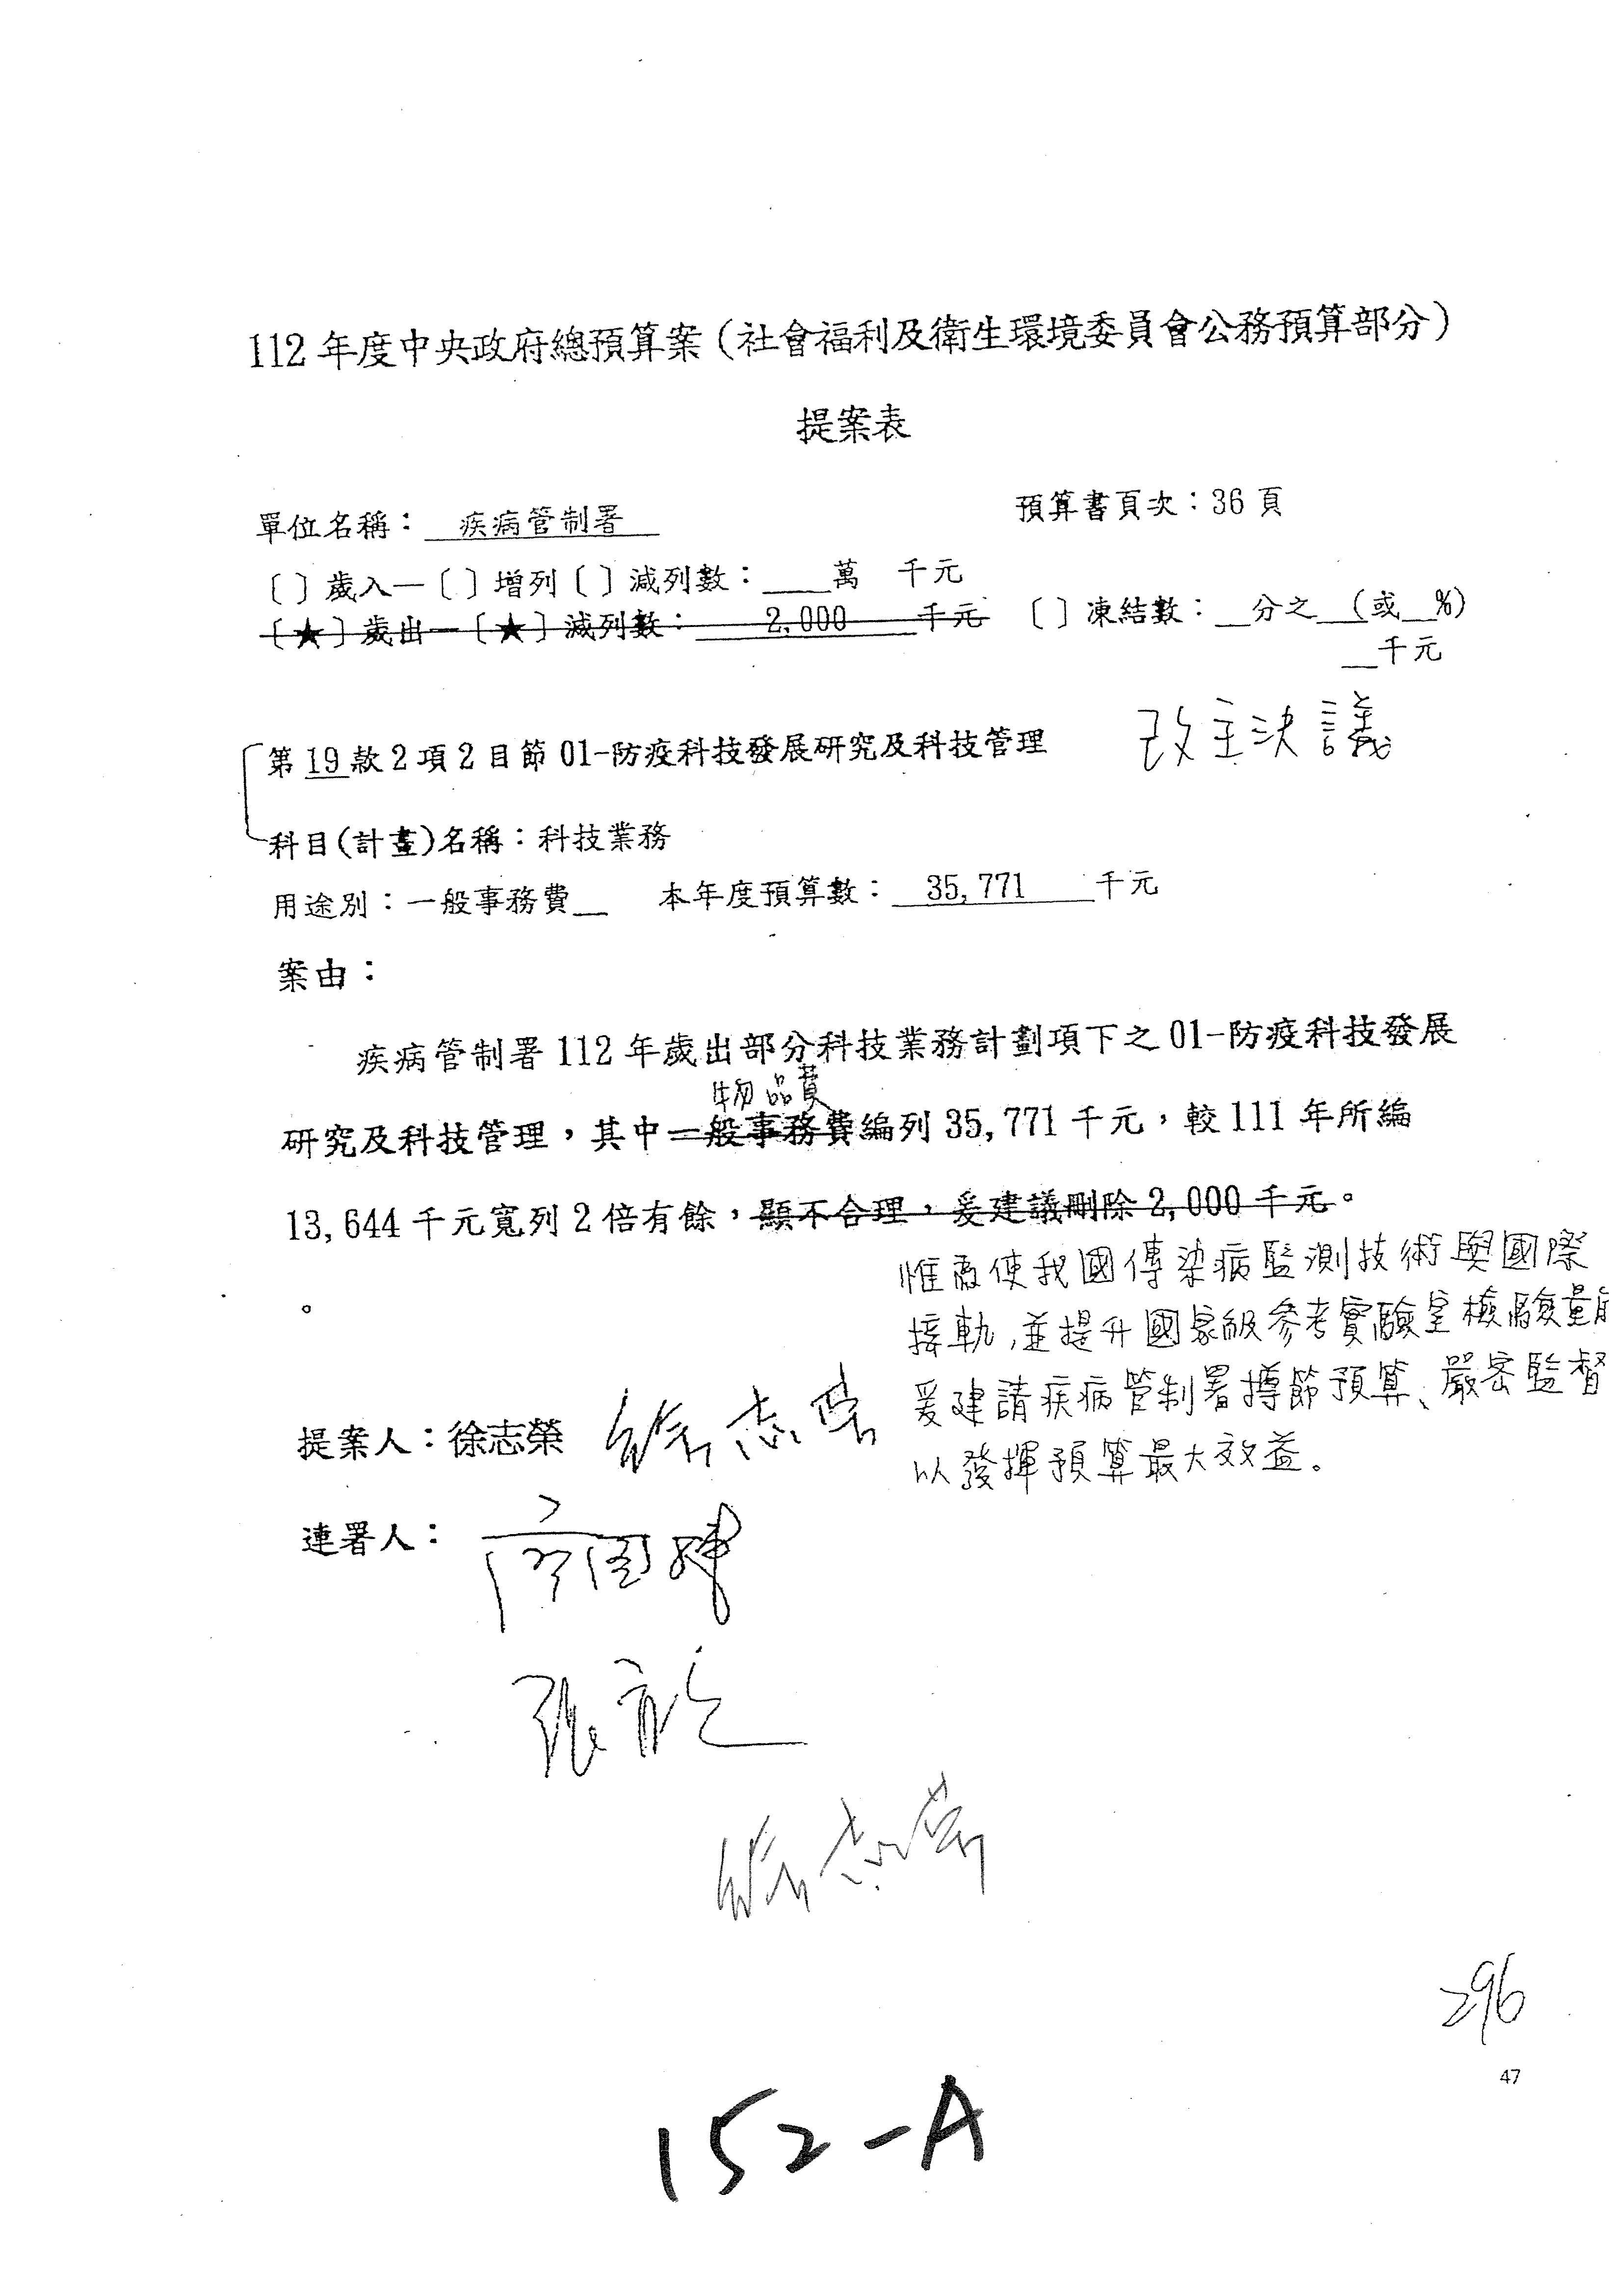 112 年度中央政府總預算案（社會福利及衛生環境委員會公務預算部分）
提案表
單位名稱：疾病管制署
預算書頁次：36 頁
〔 〕歲入—〔 〕增列〔 〕減列數：＿＿萬 千元
〔★〕歲出—〔★〕減列數：2,000 千元 〔 〕凍結數：＿分之＿（或＿%）
＿千元
改主決議
第 19 款 2 項 2 目節 01-防疫科技發展研究及科技管理
科目(計畫)名稱：科技業務
用途別：一般事務費＿ 本年度預算數：35,771 千元
案由：
疾病管制署 112 年歲出部分科技業務計劃項下之 01-防疫科技發展
物品費
研究及科技管理，其中一般事務費編列 35,771 千元，較 111 年所編
13,644 千元寬列 2 倍有餘，顯不合理，爰建議刪除 2,000 千元。
惟為使我國傳染病監測技術與國際
。
接軌,並提升國家級參考實驗室檢驗量能
爰建請疾病管制署撙節預算、嚴密監督
以發揮預算最大效益。
提案人：徐志榮 徐志榮
連署人：
徐志榮
296
47
152-A